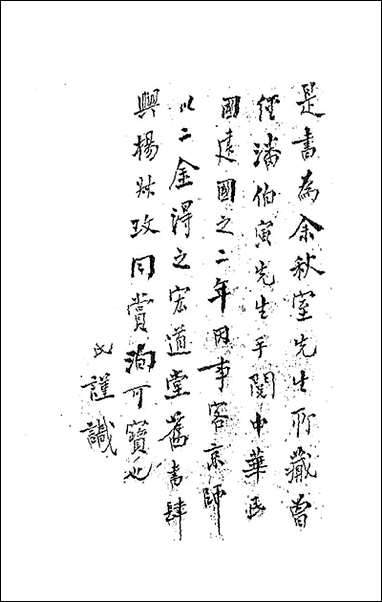 是書為余秋室先生所藏曾
經潘伯寅先生手閱中華民
國建國之二年因事客京師
以二金得之宏道堂舊書肆
與楊妹玫同賞洵可寶也
氏謹識